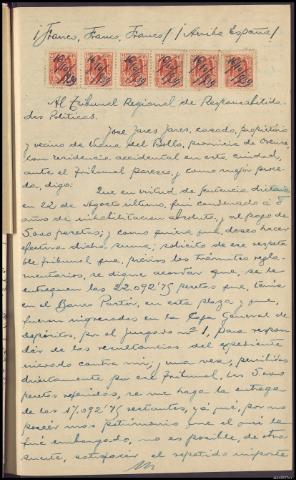 ¡Franco, Franco, Franco! ¡Arriba España!
Al Tribunal Regional de Responsabilida-
des Políticas.
Jose Jares Jares, casado, propietario
y vecino de Viana del Bollo, provincia de Orense
con residencia accidental en esta ciudad,
ante el Tribunal parezco y, como mejor proce-
da, digo: Que en virtud de sentencia dictada
en 22 de Agosto último, fuí condenado a 8
años de inhabilitacion absoluta, y al pago de
5.000 pesetas; y como quiera que deseo hacer
efectiva dicha suma, solicito de ese respeta-
ble Tribunal que, previos los trámites regla-
mentarios, se digne acordar que, se le
entreguen las 22.092'75 pesetas que, tenia
en el Banco Pastor, en esta plaza y que,
fueron ingresadas en la Caja General de
depósitos, por el Juzgado nº 1, para respon-
der de las resultancias del expediente
incoado contra mi; y una vez, percibidas
directamente por ese Tribunal, las 5.000
pesetas referidas, se me haga la entrega
de las 17.092'75 restantes, ya que, por no
poseer mas patrimonio que el que
fué embargado, no es posible, de otra
suerte, satisfacer el repetido importe